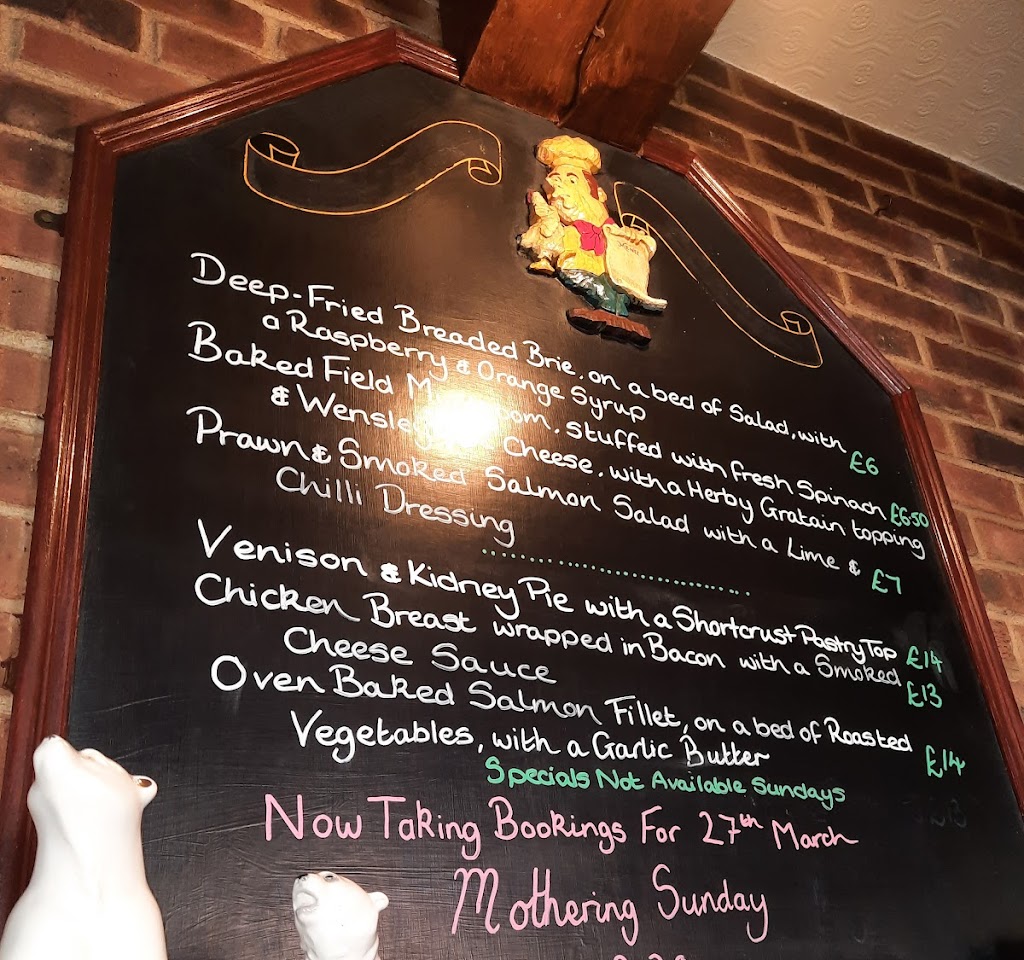 Menu
Deep-Fried Breaded Brie, on a bed of Salad, with
a Raspberry & Orange Syrup £6
Baked Field M oom, stuffed with fresh Spinach
& Wensle Cheese, with a Herby Gratain topping £6.50
Prawn & Smoked Salmon Salad with a Lime &
Chilli Dressing £7
Venison & Kidney Pie with a Shortcrust Pastry Top £14
Chicken Breast wrapped in Bacon with a Smoked
Cheese Sauce £13
Oven Baked Salmon Fillet, on a bed of Roasted
Vegetables, with a Garlic Butter £14
Specials Not Available Sundays
Now Taking Bookings For 27th March
Mothering Sunday